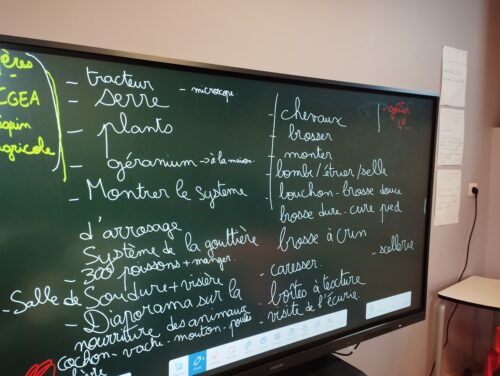 CGEA
agricole
- tracteur
- microscope
- serre
- plants
- géranium → à la maison.
- Montrer le système
d'arrosage
Système de la gouttière
- 300 poissons + manger.
- Salle de Soudure + visière
- Diaporama sur la
nourriture des animaux
cochon - vache - mouton - poules
- chevaux
brosser
monter
bombe / étrier / selle
bouchon - brosse douce
brosse dure - cure pied
brosse à crin
- sellerie
- caresser
- boîtes à texture
- visite de l'écurie.
- goûter